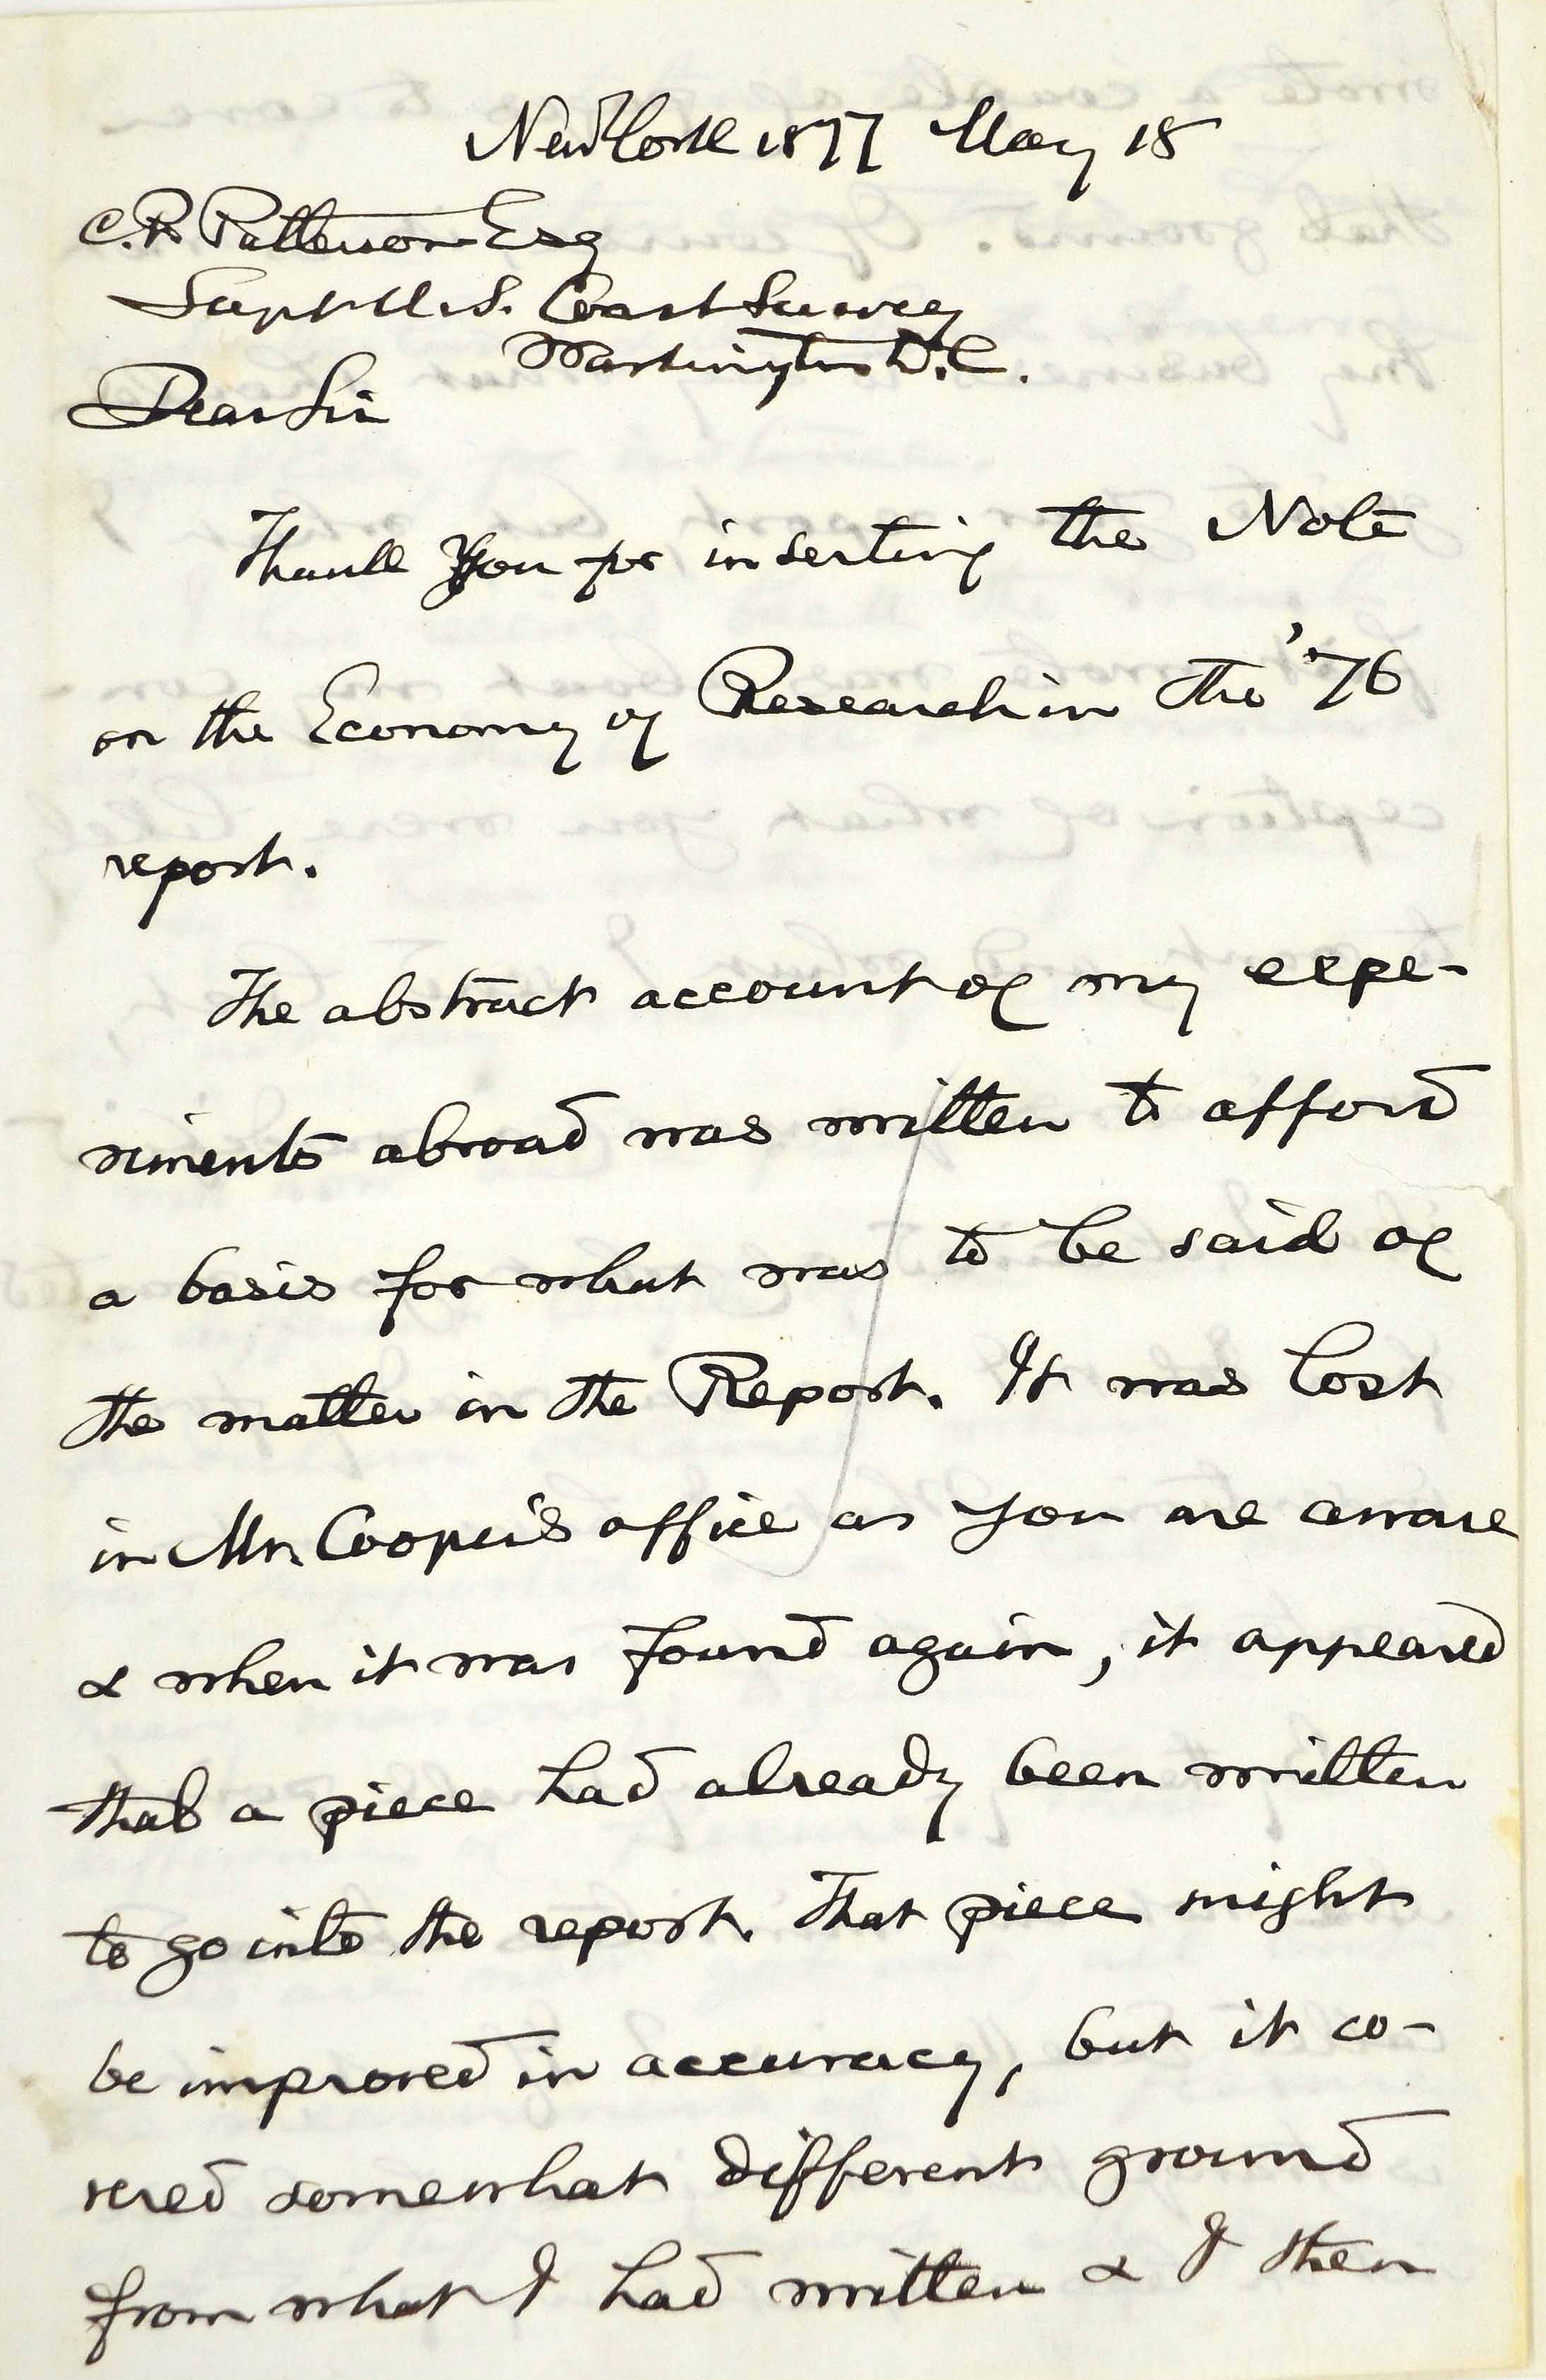 New York 1877 May 18
C.P. Patterson Esq
Supt U.S. Coast Survey
Washington D.C.
Dear Sir
Thank you for inserting the Note
on the Economy of Research in the '76
report.
The abstract account of my expe-
riments abroad was written to afford
a basis for what was to be said of
the matter in the Report. It was lost
in Mr. Cooper's office as you are aware
& when it was found again, it appeared
that a piece had already been written
to go into the report. That piece might
be improved in accuracy, but it co-
vered somewhat different ground
from what I had written & I then